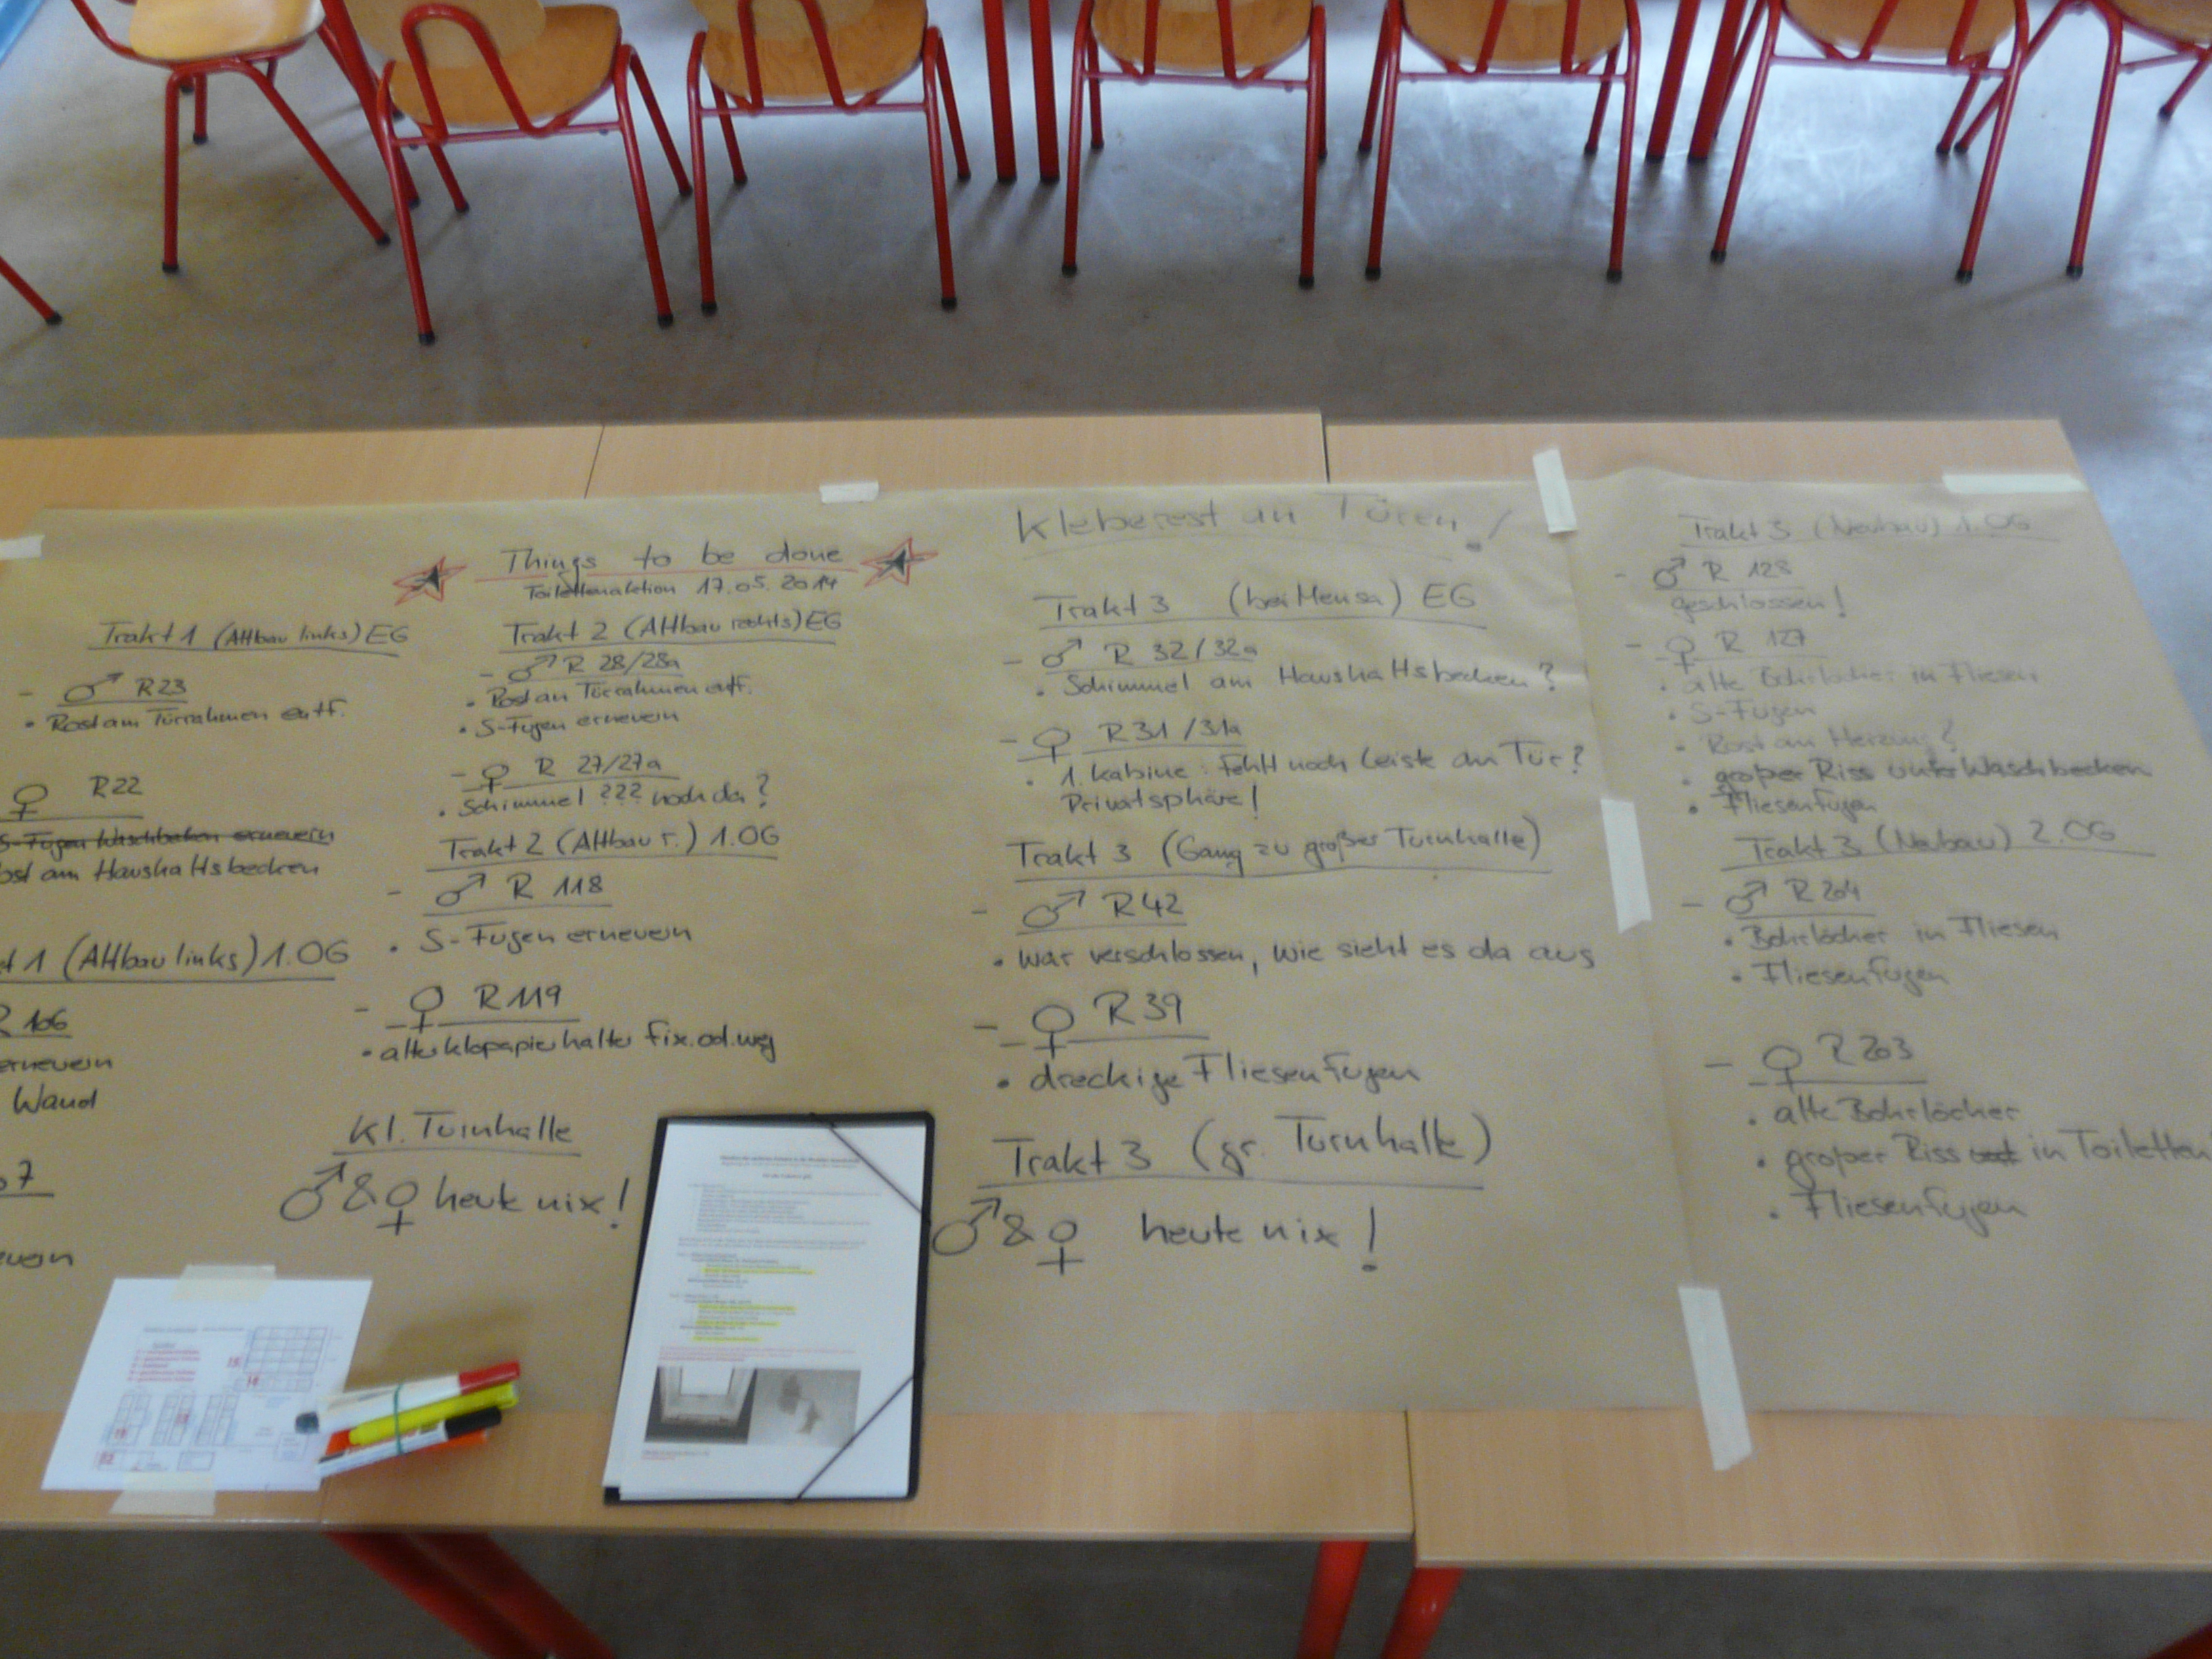 Things to be done
Toilettenaktion 17.05.2014
Trakt 1 (Altbau links) EG
- ♂ R23
• Rost am Türrahmen entf.
♀ R22
S-Fugen Waschbecken erneuern
ost am Haushaltsbecken
t 1 (Altbau links) 1.OG
R 106
erneuern
Wand
07
Trakt 2 (Altbau rechts) EG
- ♂ R 28/28a
• Rost an Türrahmen entf.
• S-Fugen erneuern
- ♀ R 27/27a
• Schimmel ??? noch da?
Trakt 2 (Altbau r.) 1.OG
- ♂ R 118
• S-Fugen erneuern
- ♀ R119
• alter Klopapierhalter fix. od. weg
Kl. Turnhalle
♂ & ♀ heute nix!
Kleberest an Türen!
Trakt 3 (bei Mensa) EG
- ♂ R 32/32a
• Schimmel am Haushaltsbecken?
- ♀ R31/31a
• 1. Kabine: fehlt noch Leiste an Tür?
Privatsphäre!
Trakt 3 (Gang zu großer Turnhalle)
- ♂ R42
• war verschlossen, wie sieht es da aus
- ♀ R39
• dreckige Fliesenfugen
Trakt 3 (gr. Turnhalle)
♂ & ♀ heute nix!
Trakt 3 (Neubau) 1.OG
- ♂ R 128
geschlossen!
- ♀ R 127
• alte Bohrlöcher in Fliesen
• S-Fugen
• Rost an Heizung?
• großer Riss unter Waschbecken
• Fliesenfugen
Trakt 3 (Neubau) 2.OG
- ♂ R204
• Bohrlöcher in Fliesen
• Fliesenfugen
- ♀ R203
• alte Bohrlöcher
• großer Riss in Toiletten
• Fliesenfugen